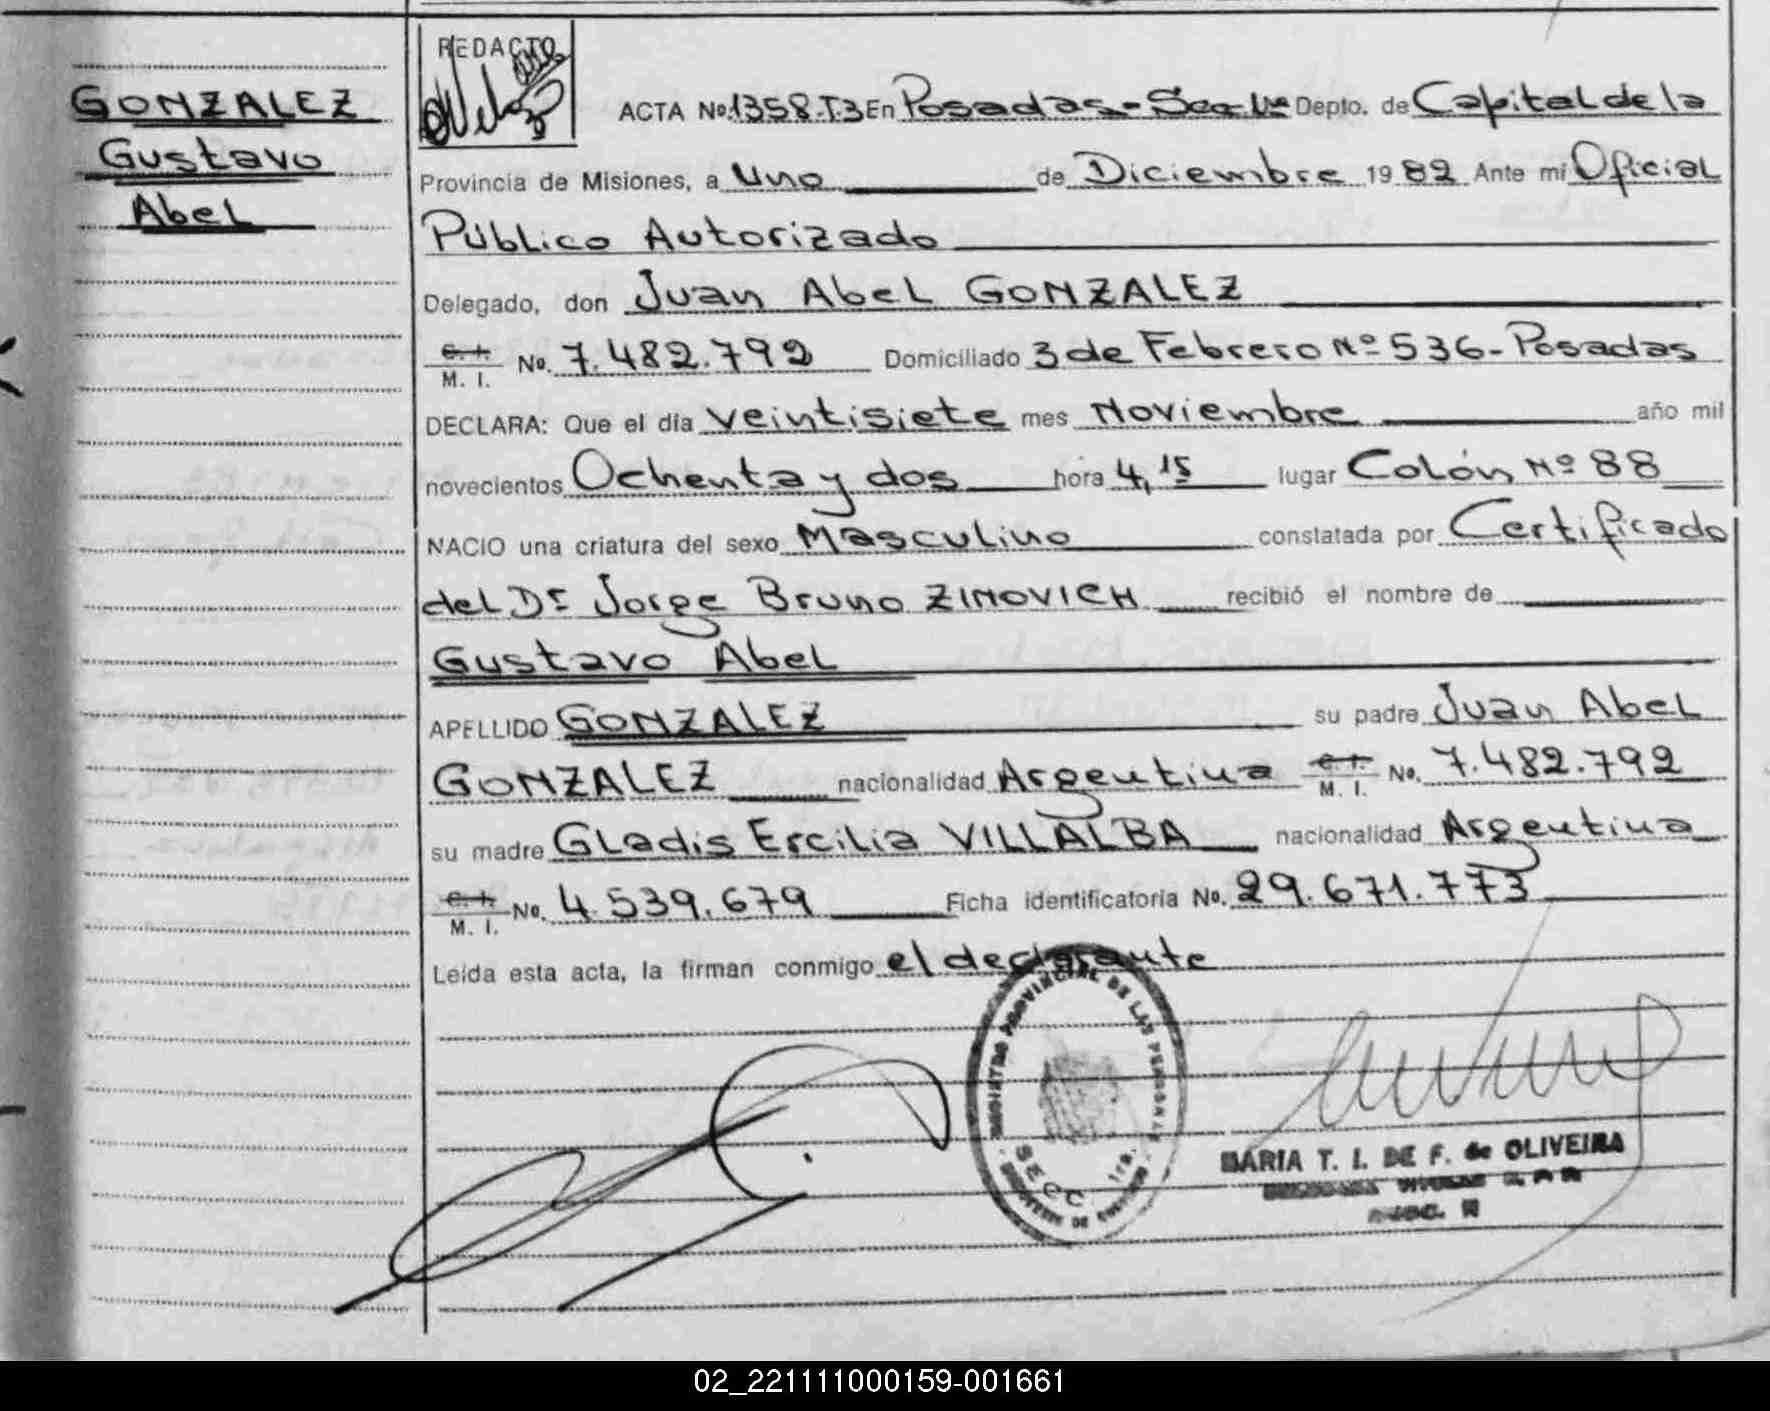 GONZALEZ
Gustavo
Abel
REDACTO
ACTA No. 1358-T.3 En Posadas - Sec. 1ra Depto. de Capital de la
Provincia de Misiones, a Uno de Diciembre 1982 Ante mi Oficial
Público Autorizado
Delegado, don Juan Abel GONZALEZ
C. I. M. I. No. 7.482.792 Domiciliado 3 de Febrero Nº 536 - Posadas
DECLARA: Que el día veintisiete mes Noviembre año mil
novecientos Ochenta y dos hora 4,15 lugar Colón Nº 88
NACIO una criatura del sexo Masculino constatada por Certificado
del Dr Jorge Bruno ZINOVICH recibió el nombre de
Gustavo Abel
APELLIDO GONZALEZ su padre Juan Abel
GONZALEZ nacionalidad Argentina C. I. M. I. No. 7.482.792
su madre Gladis Ercilia VILLALBA nacionalidad Argentina
C. I. M. I. No. 4.539.679 Ficha identificatoria No. 29.671.773
Leída esta acta, la firman conmigo el declarante
REGISTRO PROVINCIAL DE LAS PERSONAS
SECC 1ra.
MARIA T. I. DE F. de OLIVEIRA
02_221111000159-001661